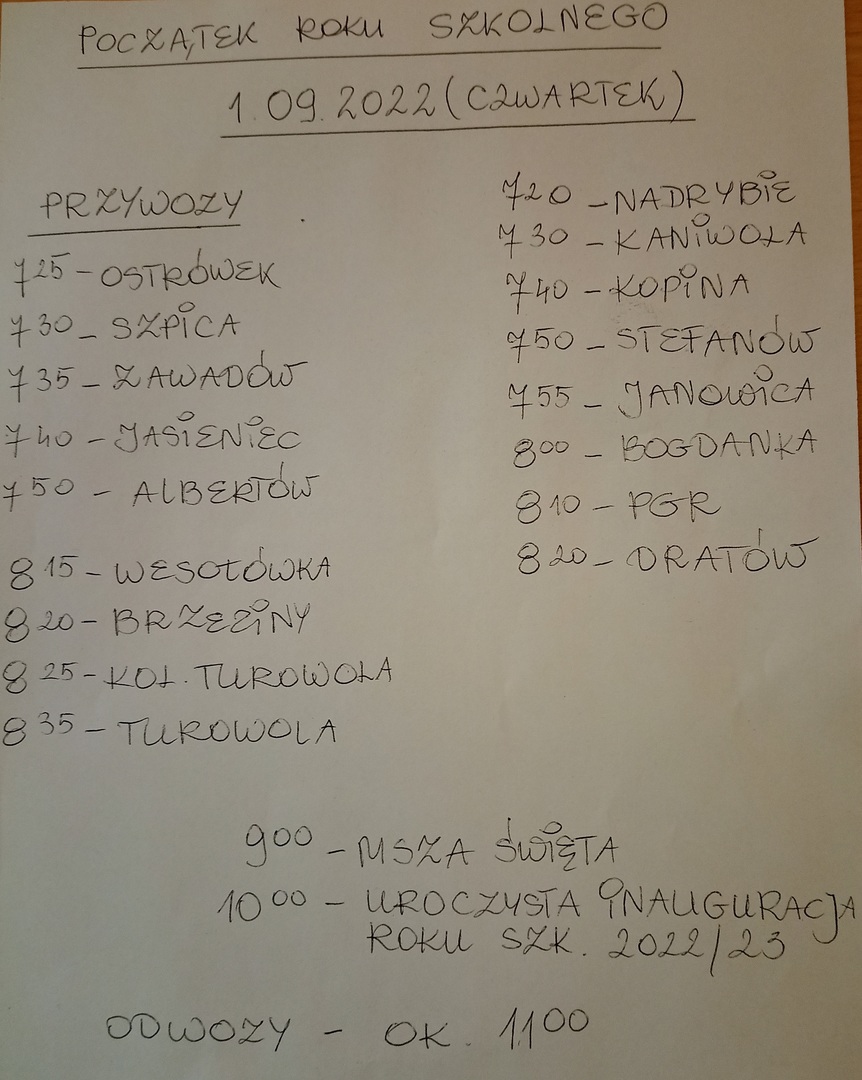 POCZĄTEK ROKU SZKOLNEGO
1.09.2022 (CZWARTEK)
PRZYWOZY
7 25 - OSTRÓWEK
7 30 - SZPICA
7 35 - ZAWADÓW
7 40 - JASIENIEC
7 50 - ALBERTÓW
8 15 - WESOŁÓWKA
8 20 - BRZEZINY
8 25 - KOL. TUROWOLA
8 35 - TUROWOLA
7 20 - NADRYBIE
7 30 - KANIWOLA
7 40 - KOPINA
7 50 - STEFANÓW
7 55 - JANOWICA
8 00 - BOGDANKA
8 10 - PGR
8 20 - DRATÓW
9 00 - MSZA ŚWIĘTA
10 00 - UROCZYSTA INAUGURACJA
ROKU SZK. 2022/23
ODWOZY - OK. 11 00